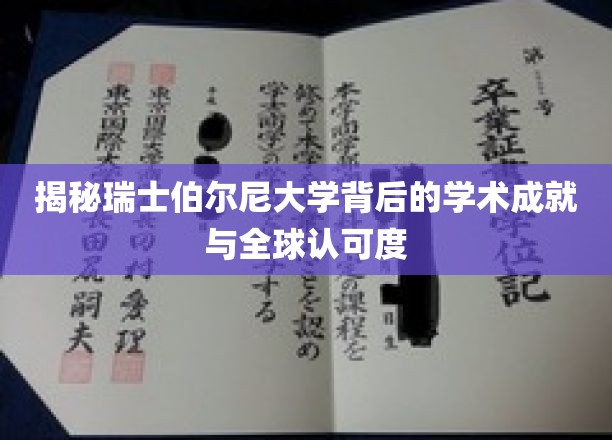 揭秘瑞士伯尔尼大学背后的学术成就
与全球认可度
第
号
卒業証
学位記
本学商学部
定の課程を
修めて本学
ことを認め
学士(商学)の学
する
平成
日生
東京国際大学
田村愛理
東京国際大学
長田尻嗣夫